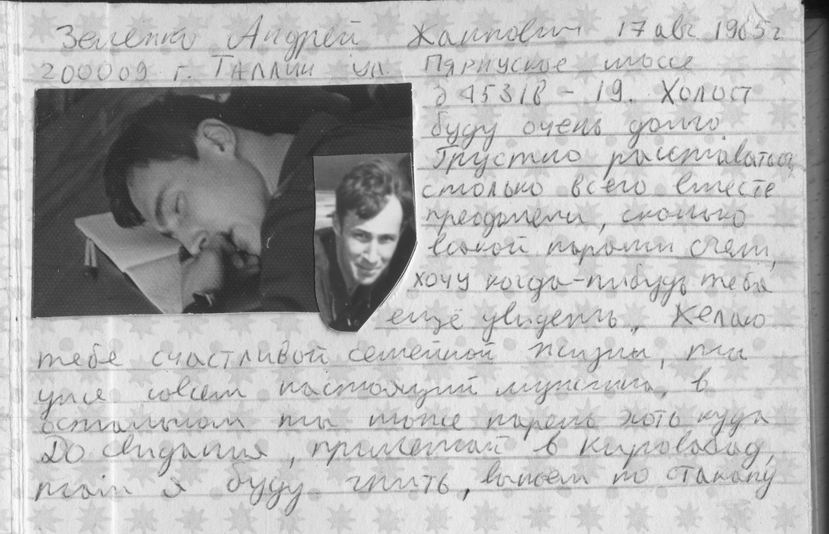 Зеленко Андрей Жаннович 17 авг 1965г
200009 г. Таллин ул. Пярнуское шоссе
д 453/8 - 19. Холост
буду очень долго
Грустно расставаться,
столько всего вместе
преодолели, сколько
всякой съели,
хочу когда-нибудь тебя
ещё увидеть. Желаю
тебе счастливой семейной жизни, ты
уже совсем настоящий мужчина, в
остальном ты тоже парень хоть куда
До свидания, приезжай в Кировабад,
там я буду жить, выпьем по стакану